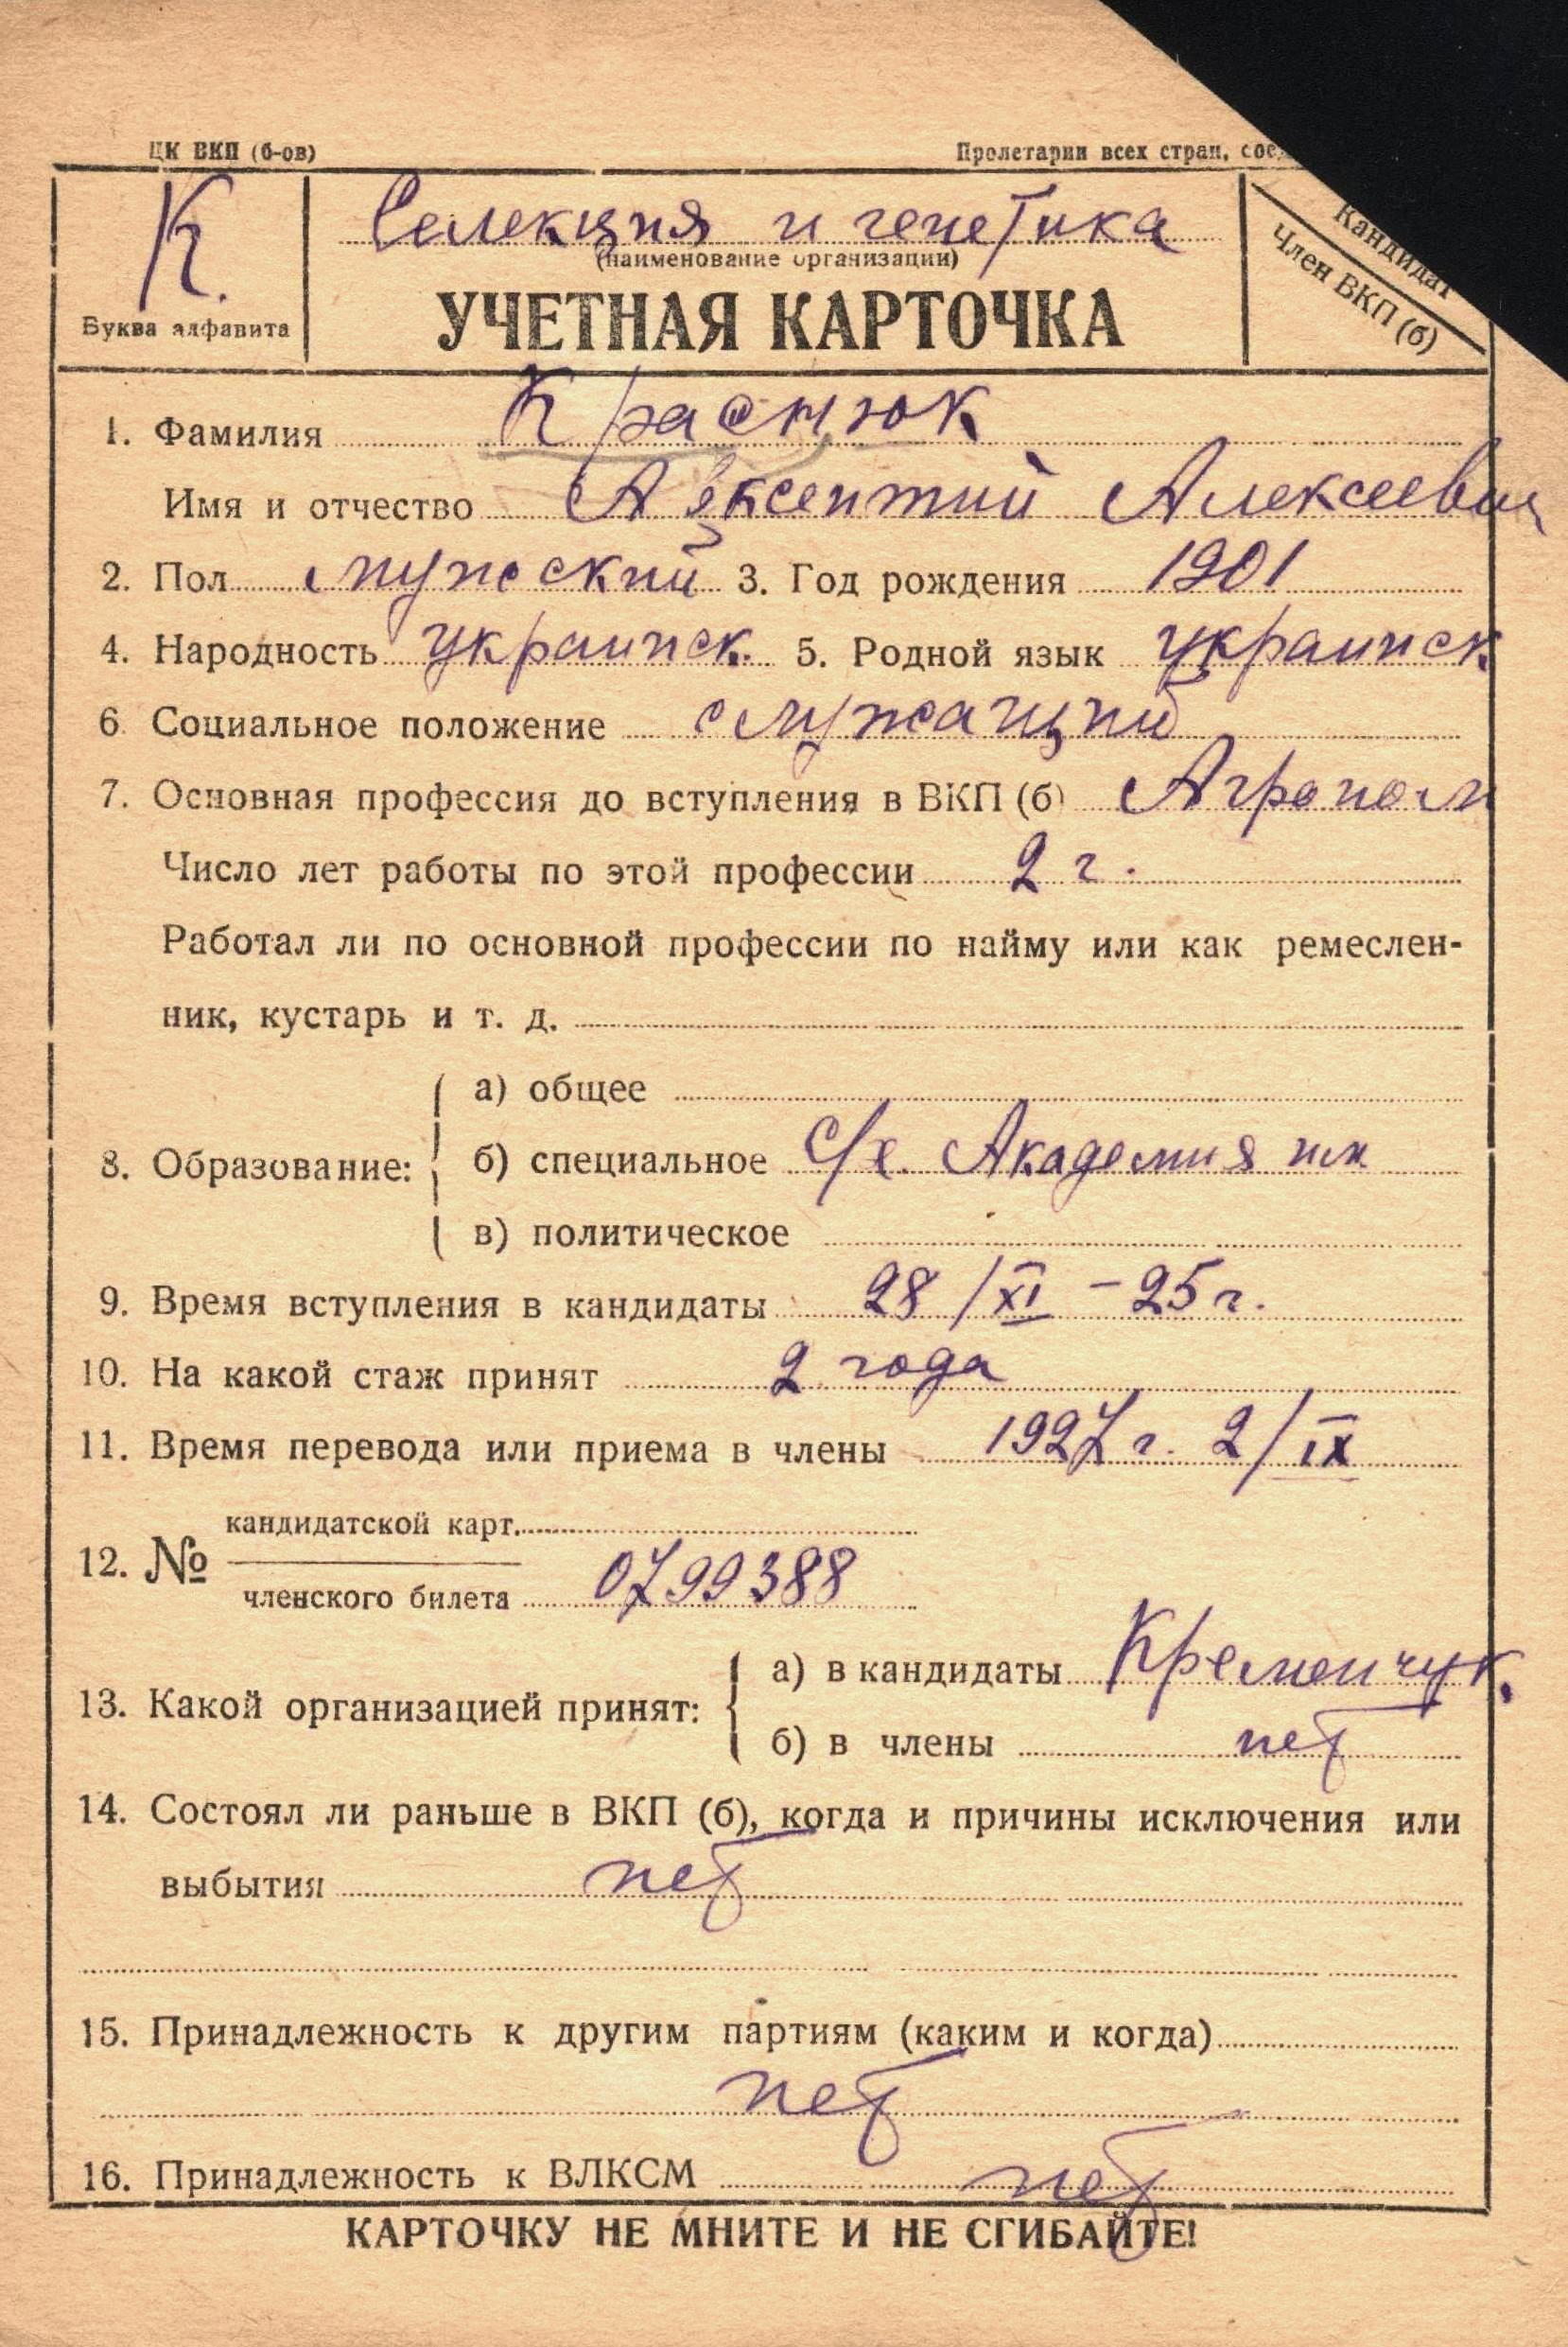 ЦК ВКП (б-ов)
Пролетарии всех стран, сое
К.
Буква алфавита
Селекция и генетика
(наименование организации)
УЧЕТНАЯ КАРТОЧКА
Кандидат
Член ВКП (б)
1. Фамилия Краснюк
Имя и отчество Авксентий Алексеевич
2. Пол мужской 3. Год рождения 1901
4. Народность украинск. 5. Родной язык украинск
6 Социальное положение служащий
7. Основная профессия до вступления в ВКП (б) Агроном
Число лет работы по этой профессии 2 г.
Работал ли по основной профессии по найму или как ремеслен-
ник, кустарь и т. д.
8. Образование:
а) общее
б) специальное С/х. Академия им
в) политическое
9. Время вступления в кандидаты 28/XI – 25 г.
10. На какой стаж принят 2 года
11. Время перевода или приема в члены 1927 г. 2/IX
12. №
кандидатской карт.
членского билета 0799388
13. Какой организацией принят:
а) в кандидаты Кременчук.
б) в члены нет
14. Состоял ли раньше в ВКП (б), когда и причины исключения или
выбытия нет
15. Принадлежность к другим партиям (каким и когда)
нет
16. Принадлежность к ВЛКСМ нет
КАРТОЧКУ НЕ МНИТЕ И НЕ СГИБАЙТЕ!